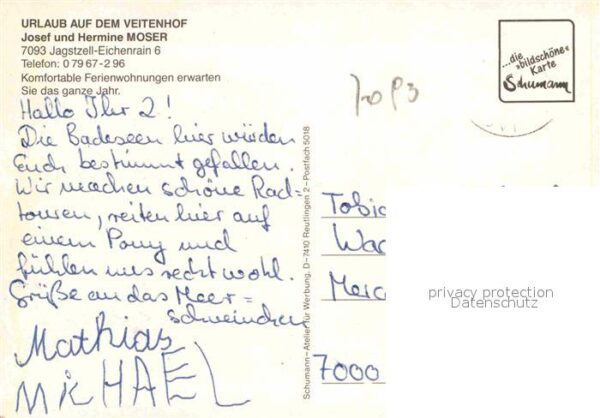 URLAUB AUF DEM VEITENHOF
Josef und Hermine MOSER
7093 Jagstzell-Eichenrain 6
Telefon: 0 79 67-2 96
Komfortable Ferienwohnungen erwarten
Sie das ganze Jahr.
...die
»bildschöne«
Karte
Schumann
7093
Hallo Ihr 2!
Die Badeseen hier würden
Euch bestimmt gefallen.
Wir machen schöne Rad-
touren, reiten hier auf
einem Pony und
fühlen uns recht wohl.
Grüße an das Meer=
schweinchen
Mathias
MICHAEL
Schumann–Atelier für Werbung, D–7410 Reutlingen 2 – Postfach 5018
Tobia
Wa
Merc
7000
privacy protection
Datenschutz